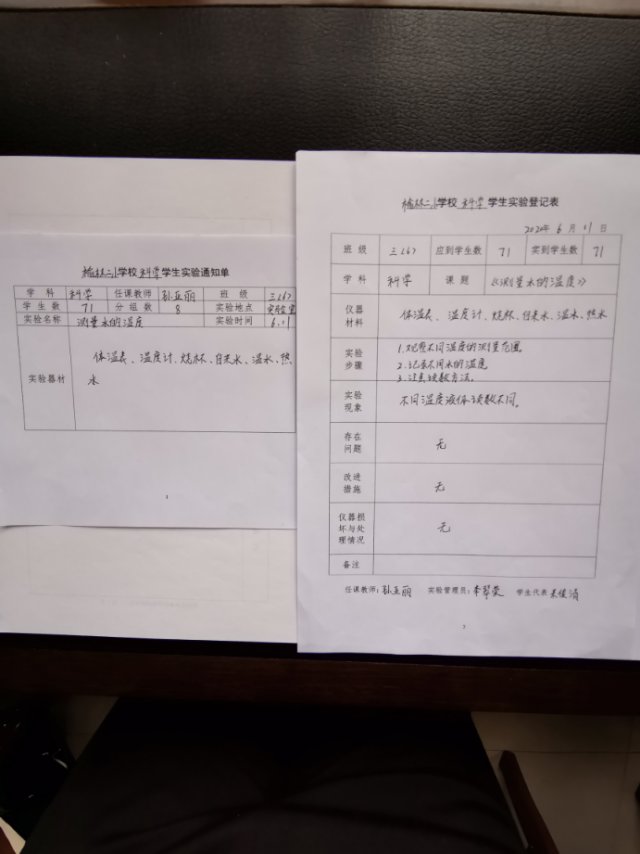 榆林二小学校 科学 学生实验通知单
学 科 科学 任课教师 孙亚丽 班 级 三(6)
学 生 数 71 分 组 数 8 实验地点 实验室
实验名称 测量水的温度 实验时间 6.11
实验器材 体温表、温度计、烧杯、自来水、温水、热
水
榆林二小学校 科学 学生实验登记表
6 月 11 日
班 级 三(6) 应到学生数 71 实到学生数 71
学 科 科学 课 题 《测量水的温度》
仪器
材料 体温表、温度计、烧杯、自来水、温水、热水
实验
步骤
1.观察不同温度的测量范围。
2.记录不同水的温度
3.注意读数方法。
实验
现象
不同温度液体读数不同。
存在
问题
无
改进
措施
无
仪器损
坏与处
理情况
无
备注
任课教师:孙亚丽 实验管理员: 学生代表